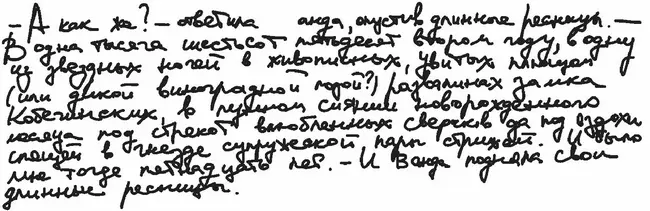 – А как же? – ответила анда, опустив длинные ресницы. –
В одна тысяча шестьсот пятьдесят втором году, в одну
из звездных ночей в живописных, увитых плющом
(или дикой виноградной лозой?) развалинах замка
Котегинских, в лунном сиянии новорожденного
месяца под стрекот влюбленных сверчков да под вздохи
спящей в гнезде супружеской пары стрижей. И было
мне тогда пятнадцать лет. – И Ванда подняла свои
длинные ресницы.